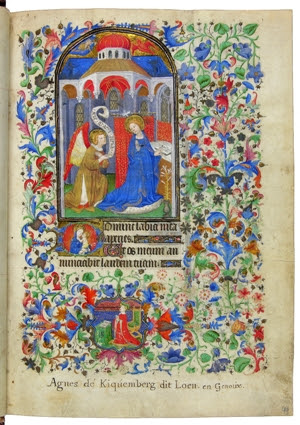 Domine labia mea
aperies.
Et os meum an
nunciabit laudem tuam
Agnez de Kiquemberg dit Loen. en